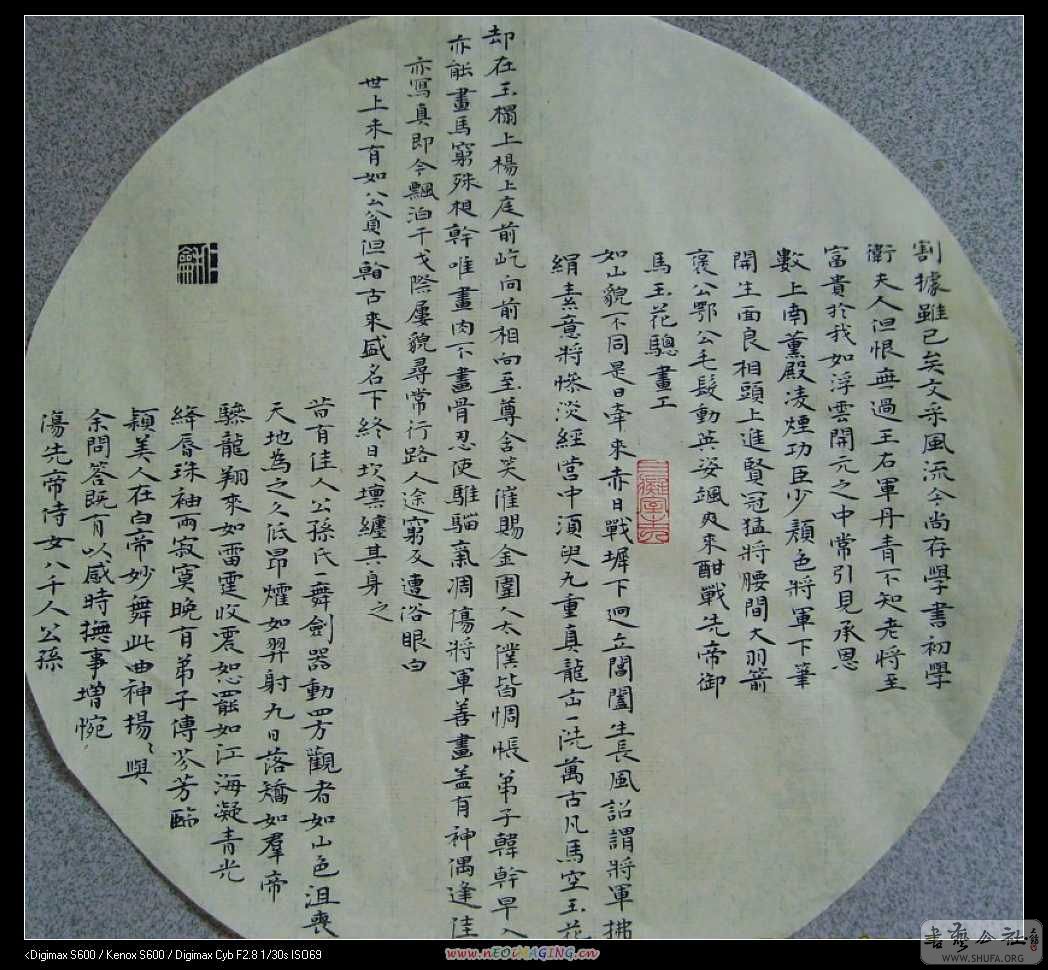 割據雖已矣文采風流今尚存學書初學
衛夫人但恨無過王右軍丹青不知老將至
富貴於我如浮雲開元之中常引見承恩
數上南薰殿凌煙功臣少顏色將軍下筆
開生面良相頭上進賢冠猛將腰間大羽箭
褒公鄂公毛髮動英姿颯爽來酣戰先帝御
馬玉花驄畫工
如山貌不同是日牽來赤日戰墀下迥立閶闔生長風詔謂將軍拂
絹素意將慘淡經營中須臾九重真龍出一洗萬古凡馬空玉花
却在玉榻上楊上庭前屹向前相向至尊含笑催賜金圉人太僕皆惆悵弟子韓幹早入
亦能畫馬窮殊相幹唯畫肉不畫骨忍使騅騮氣凋傷將軍善畫蓋有神偶逢佳
亦寫真即今飄泊干戈際屢貌尋常行路人途窮反遭俗眼白
世上未有如公貧但看古來盛名下終日坎壈纏其身之
昔有佳人公孫氏一舞劍器動四方觀者如山色沮喪
天地為之久低昂㸌如羿射九日落矯如羣帝
驂龍翔來如雷霆收震怒罷如江海凝青光
絳唇珠袖兩寂寞晚有弟子傳芬芳臨
潁美人在白帝妙舞此曲神揚〻與
余問答既有以感時撫事增惋
傷先帝侍女八千人公孫
<Digimax S600 / Kenox S600 / Digimax Cyb F2.8 1/30s ISO69
www.nEOiMAGING.cn
書藝公社
WWW.SHUFA.ORG